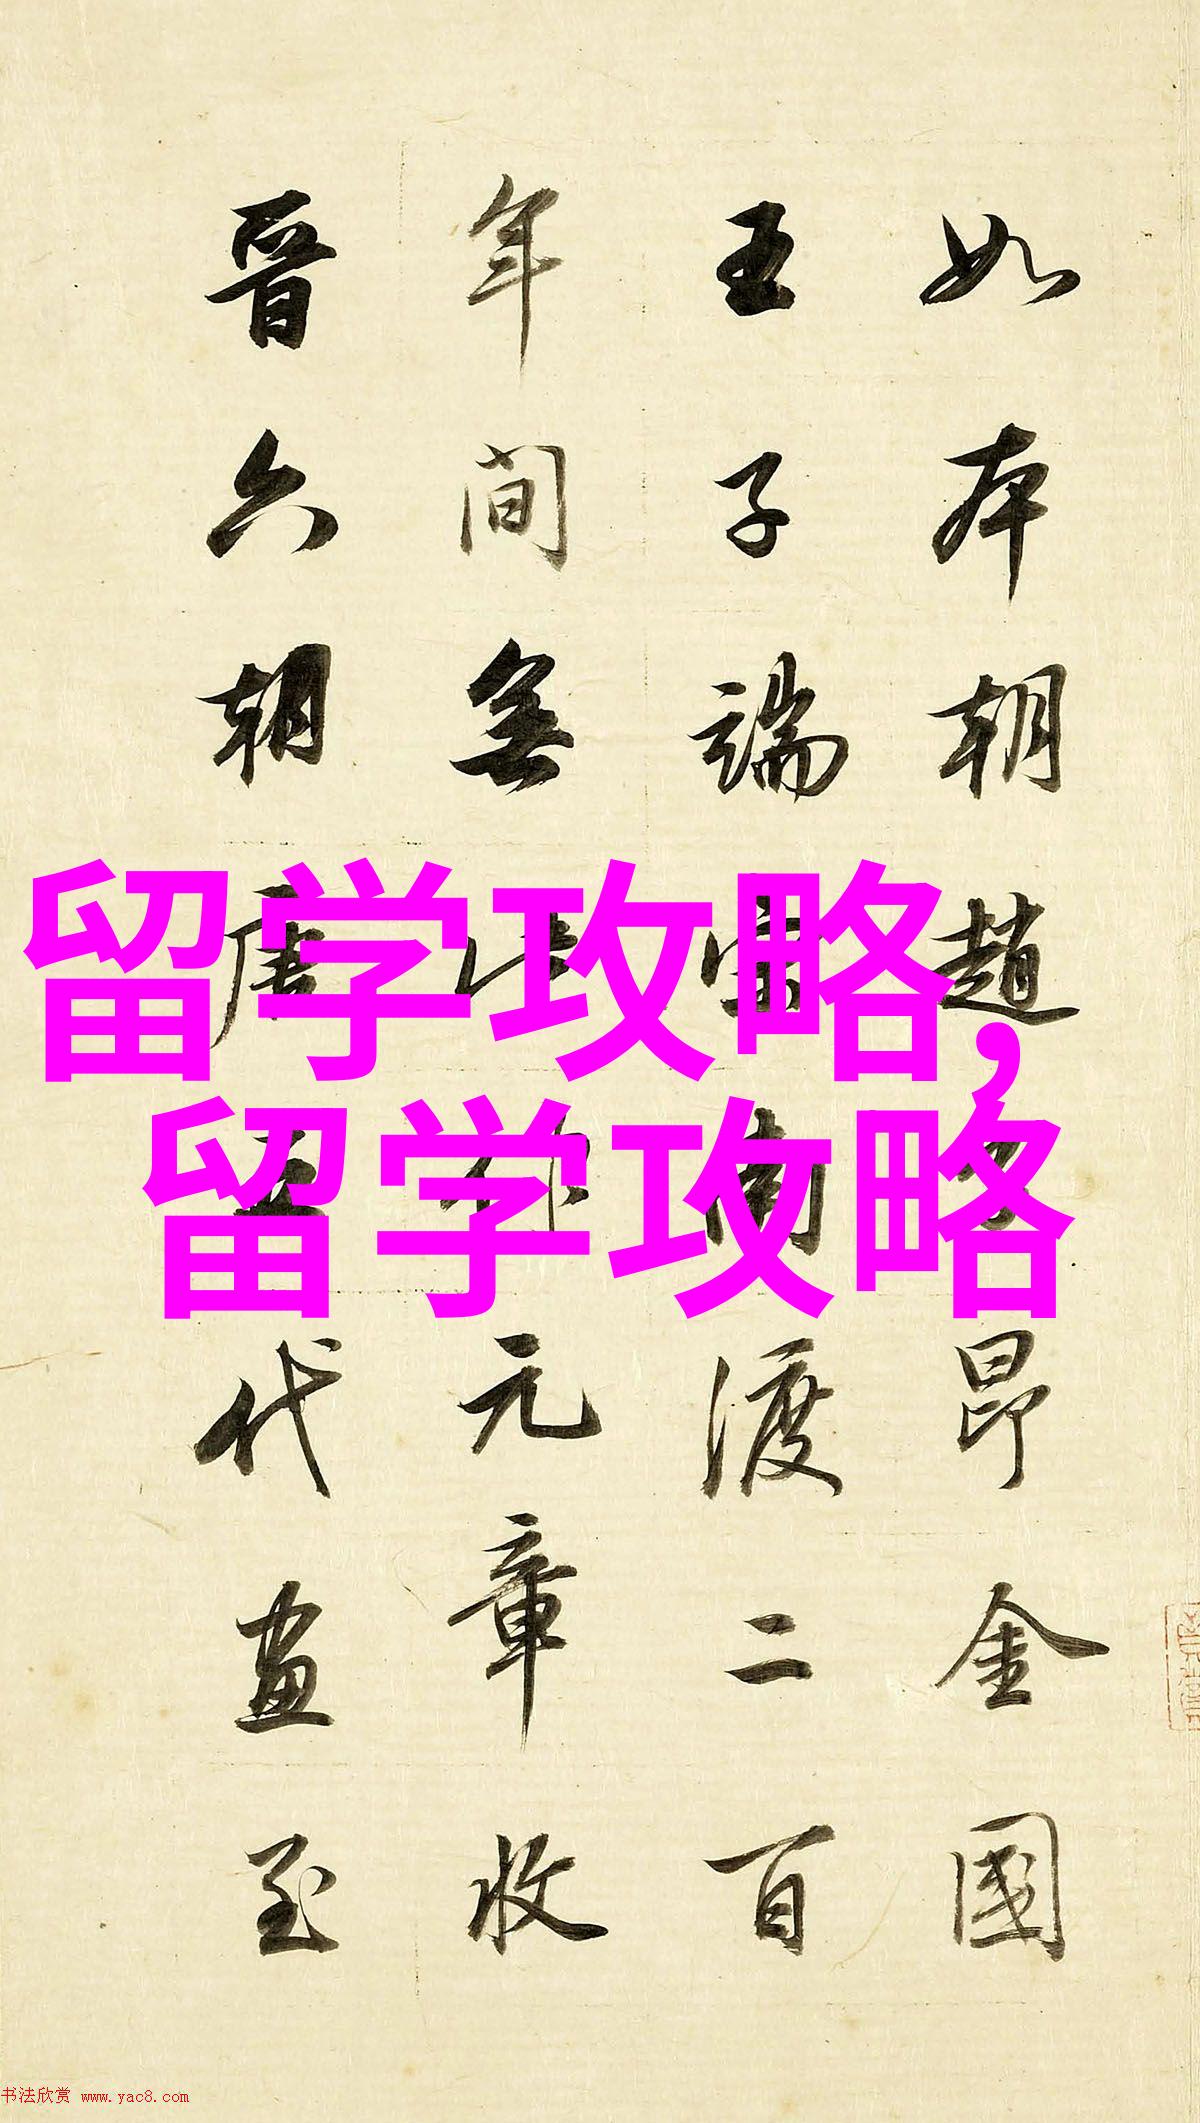 如本朝趙子昂金國
王子端宋南渡二百
年間無此作元章收
晉六朝唐五代畫至
留学攻略,
留学攻略
书法欣赏 www.yac8.com